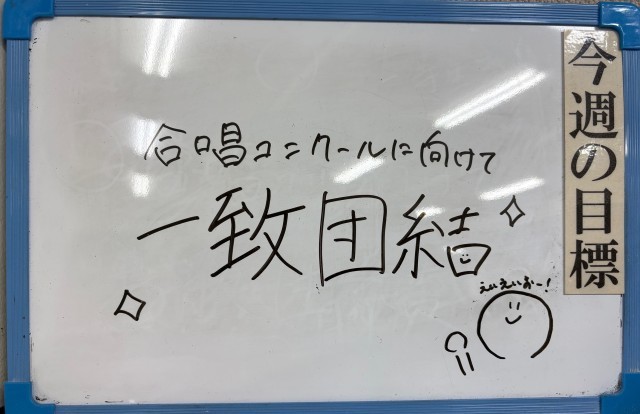 今週の目標
合唱コンクールに向けて
一致団結
えいえいおー!